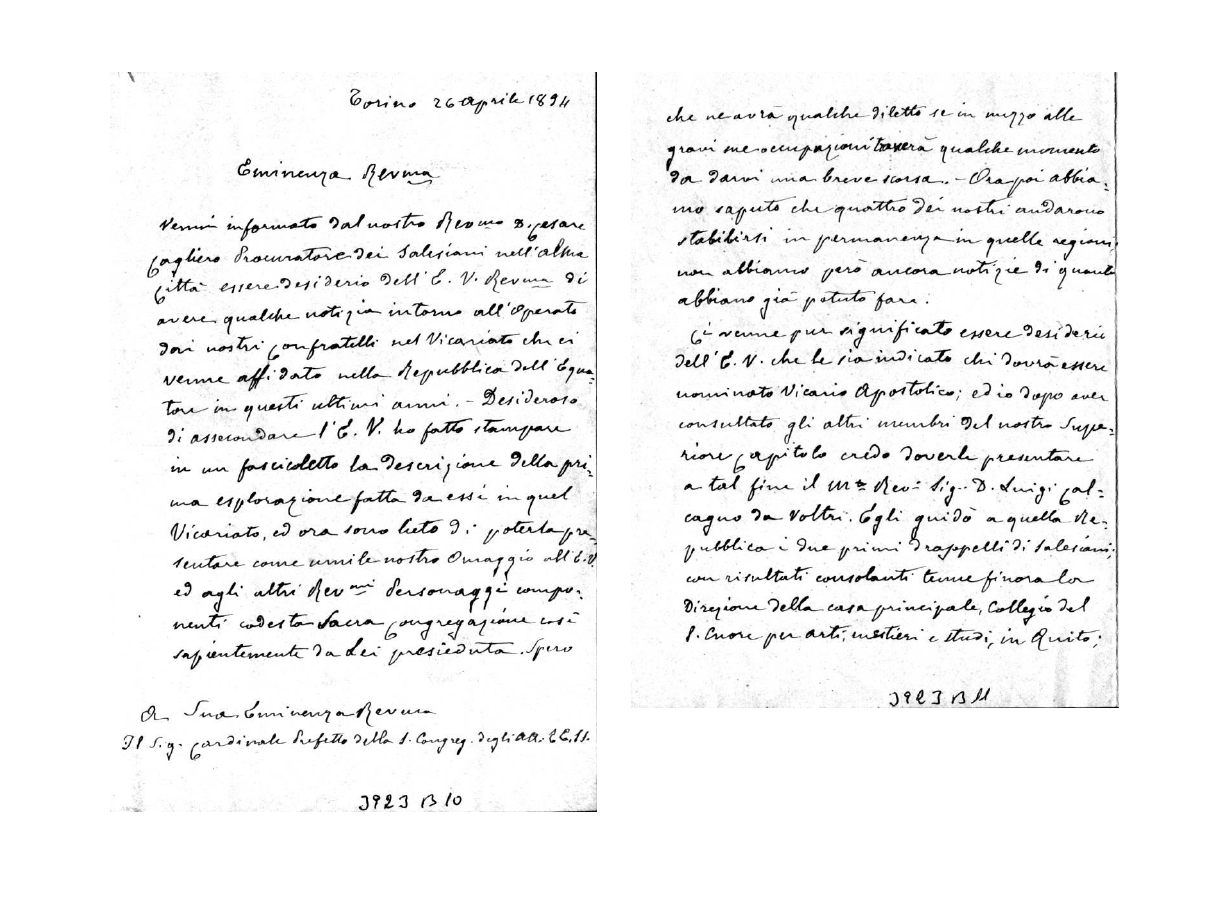 Torino 26 Aprile 1894
Eminenza Revma
Venni informato dal nostro Revmo D. Cesare
Cagliero Procuratore dei Salesiani nell'alma
Città essere desiderio dell'E. V. Revma di
avere qualche notizia intorno all'operato
dai nostri Confratelli nel Vicariato che ci
venne affidato nella Repubblica dell'Equa-
tore in questi ultimi anni. - Desideroso
di assecondare l'E. V. ho fatto stampare
in un fascicoletto la descrizione della pri-
ma esplorazione fatta da essi in quel
Vicariato, ed ora sono lieto di poterla pre-
sentare come umile nostro Omaggio all'E. V.
ed agli altri Revmi Personaggi compo-
nenti codesta Sacra Congregazione così
sapientemente da Lei presieduta. Spero
A Sua Eminenza Revma
Il Sig. Cardinale Prefetto della S. Congreg. degli AA. EE. SS.
3923 B 10
che ne avrà qualche diletto se in mezzo alle
gravi sue occupazioni troverà qualche momento
da darvi una breve scorsa. - Ora poi abbia-
mo saputo che quattro dei nostri andarono
stabilirsi in permanenza in quelle regioni
non abbiamo però ancora notizie di quanto
abbiano già potuto fare.
Ci venne pur significato essere desiderio
dell'E. V. che le sia indicato chi dovrà essere
nominato Vicario Apostolico; ed io dopo aver
consultato gli altri membri del nostro Supe-
riore Capitolo credo doverle presentare
a tal fine il M.to Rev. Sig. D. Luigi Cal-
cagno da Voltri. Egli guidò a quella Re-
pubblica i due primi drappelli di Salesiani;
con risultati consolanti tenne finora la
Direzione della casa principale, Collegio del
S. Cuore per arti, mestieri e studi, in Quito;
3923 B 11